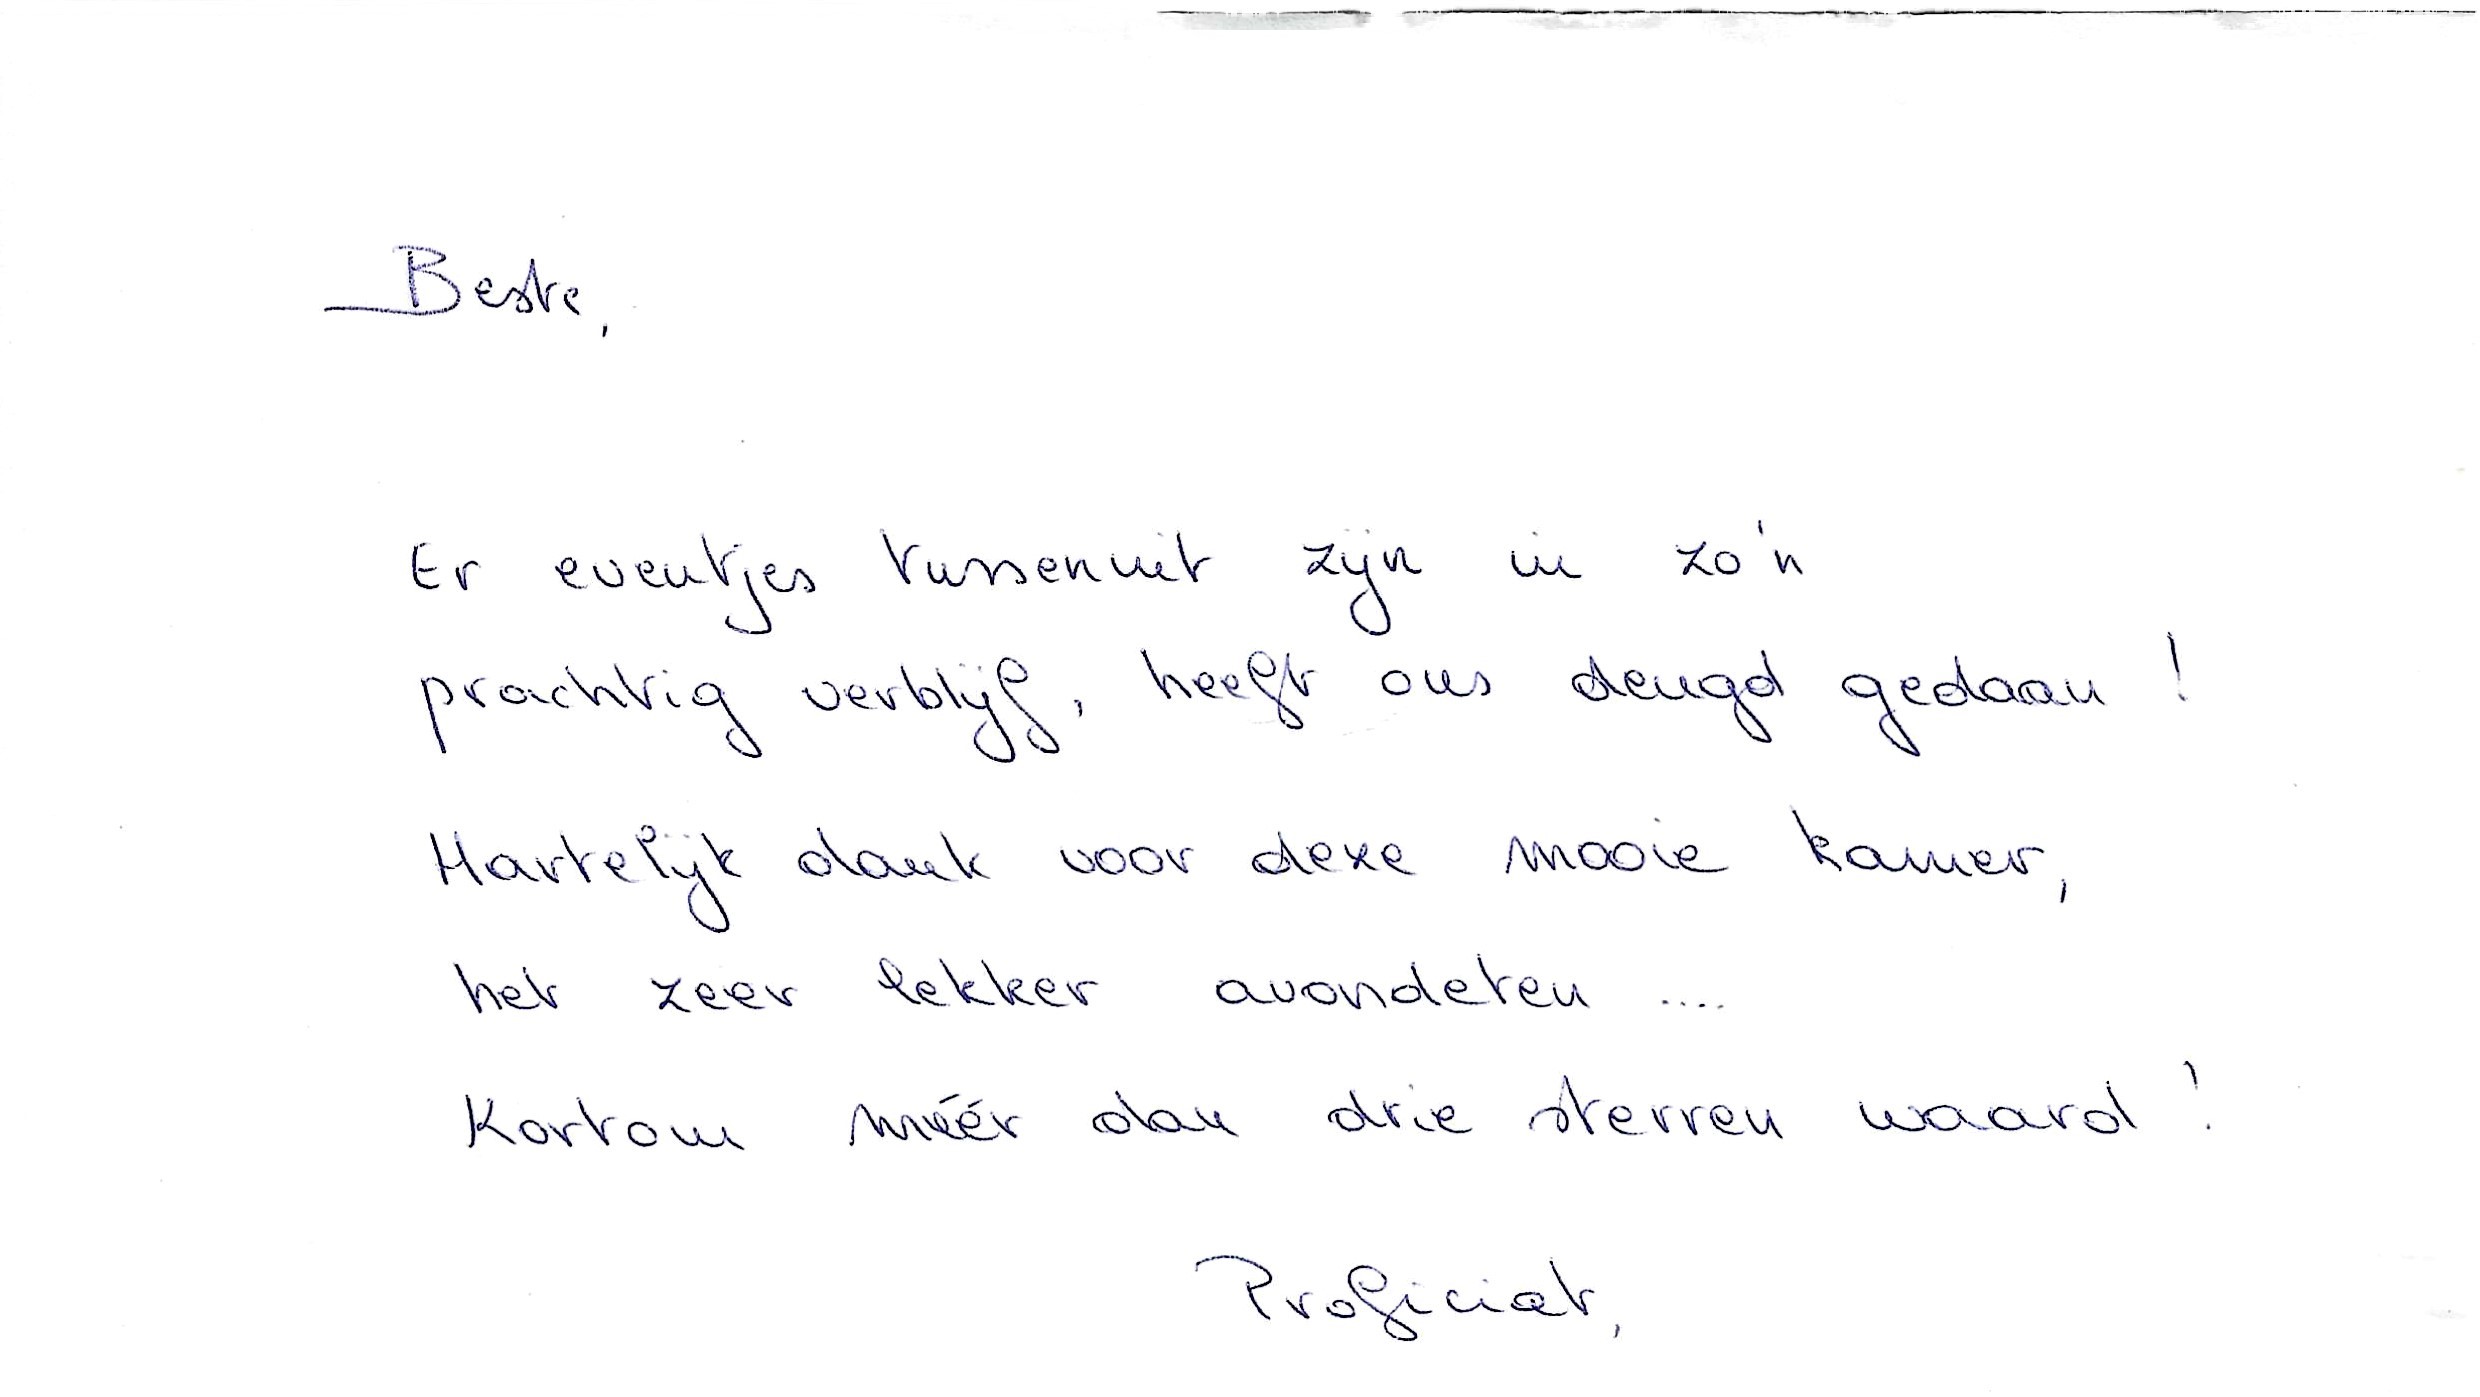 Beste,
Er eventjes tussenuit zijn in zo'n
prachtig verblijf, heeft ons deugd gedaan !
Hartelijk dank voor deze mooie kamer,
het zeer lekker avondeten ....
Kortom méér dan drie sterren waard !
Proficiat,